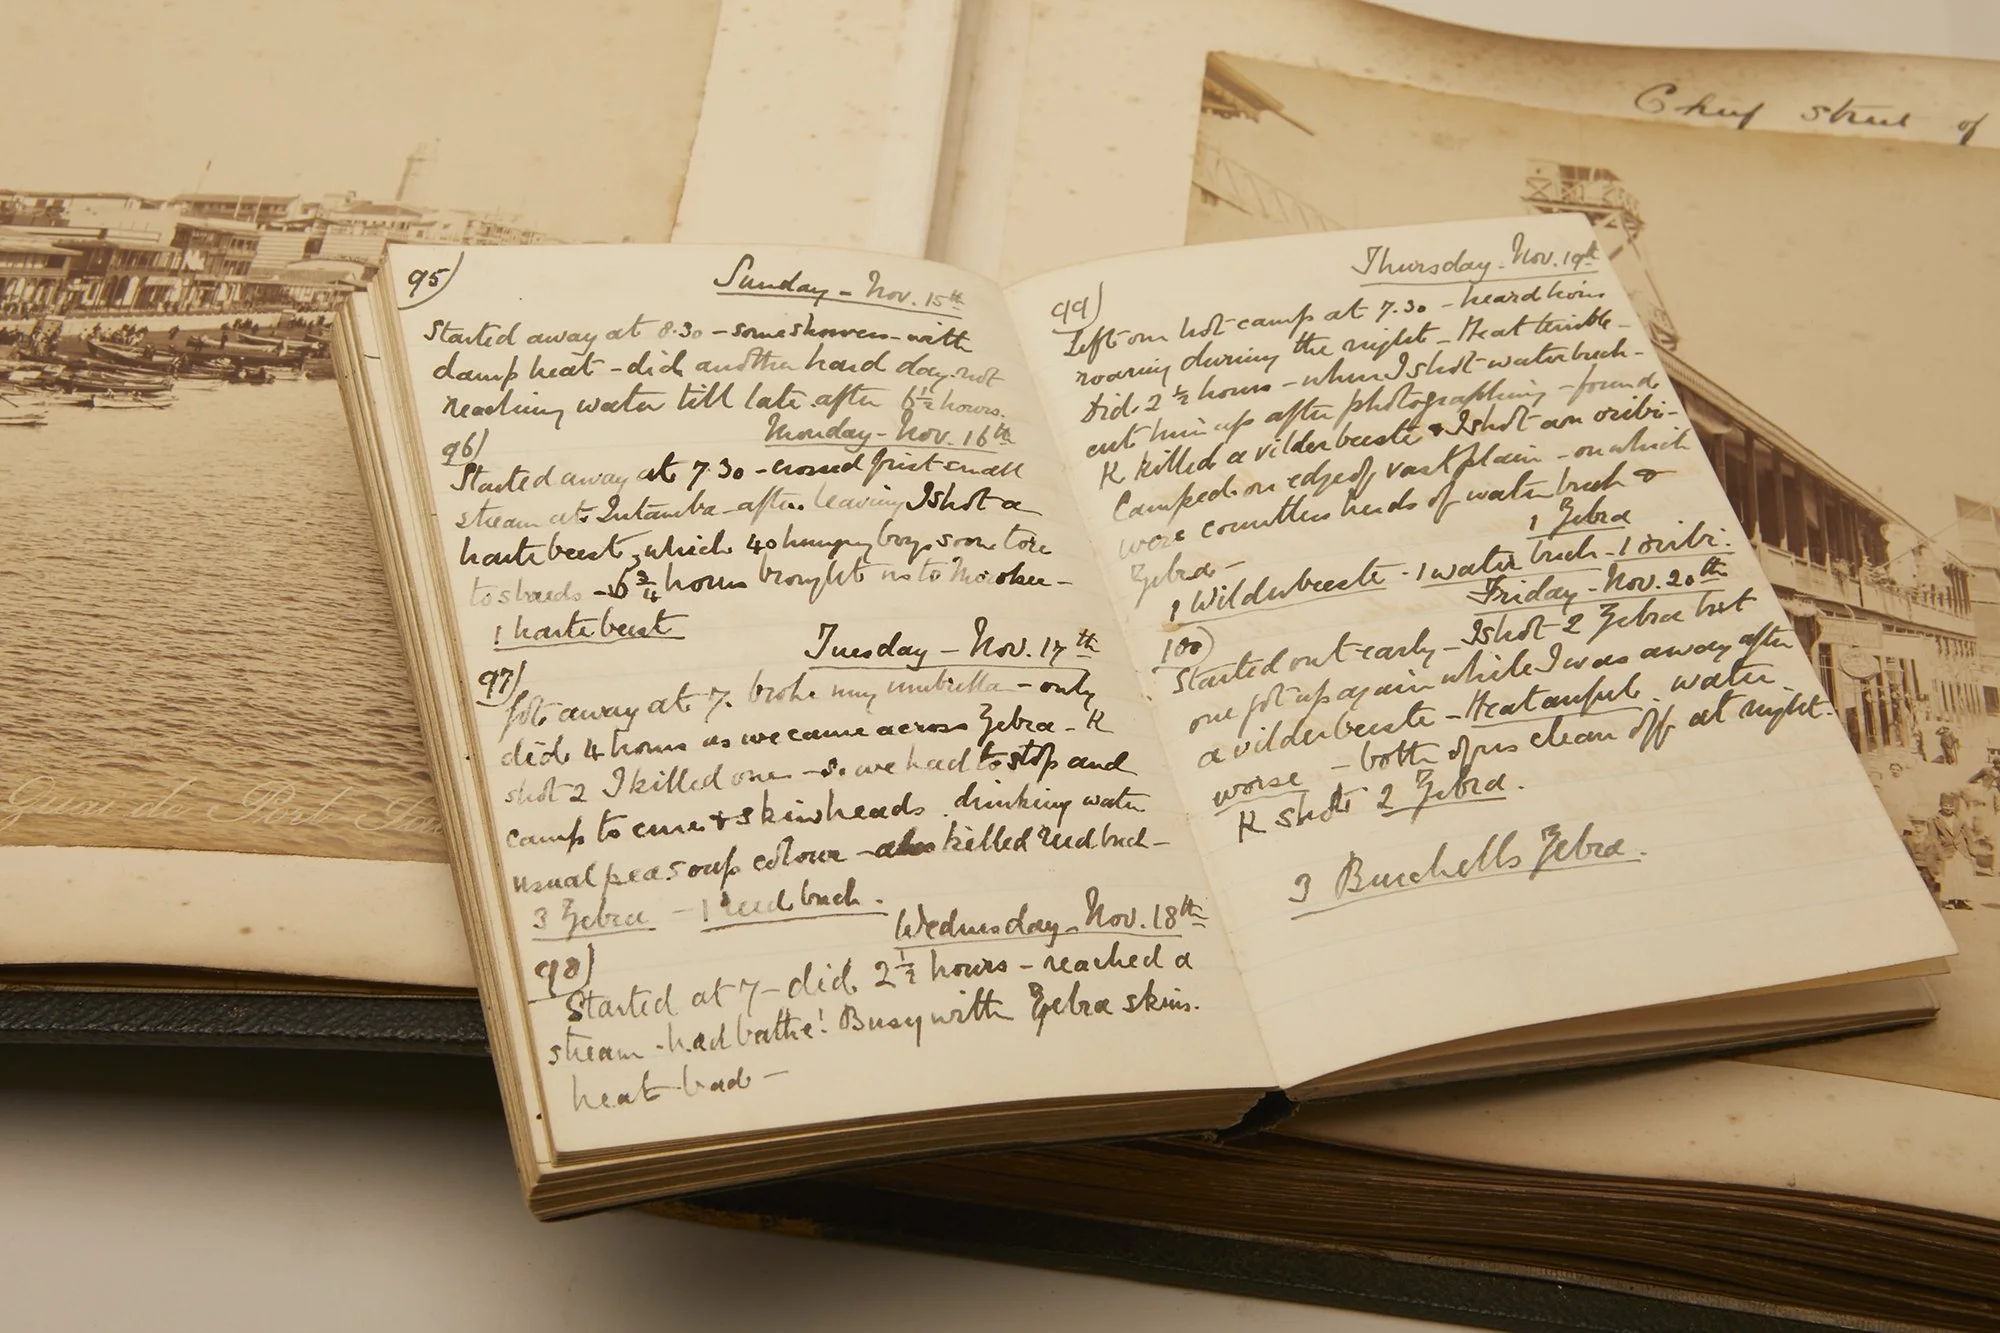 Chief street of
Quai de Port
95)
Sunday - Nov. 15th
Started away at 8.30 - some showers - with
damp heat - did another hard day not
reaching water till late after 6½ hours.
Monday - Nov. 16th
96)
Started away at 7.30 - crossed first small
stream at Intamba - after leaving I shot a
hartebeest, which 40 hungry boys soon tore
to shreds - 6¾ hours brought us to
1 hartebeest
Tuesday - Nov. 17th
97)
Got away at 7. broke my umbrella - only
did 4 hours as we came across Zebra - K
shot 2 I killed one - so we had to stop and
camp to cure & skin heads. drinking water
usual pea soup colour - also killed reedbuck -
3 Zebra - 1 reedbuck.
Wednesday - Nov. 18th
98)
Started at 7 - did 2½ hours - reached a
stream - had bathe! Busy with Zebra skins.
heat bad -
Thursday - Nov. 19th
99)
Left our hot camp at 7.30 - heard lions
roaring during the night - Heat terrible -
Did 2½ hours - when I shot waterbuck -
cut him up after photographing - found
K killed a vilderbeeste & I shot an oribi -
Camped on edge of vast plain - on which
were countless herds of waterbuck &
Zebra -
1 Zebra
1 Wilderbeeste - 1 water buck - 1 oribi.
Friday - Nov. 20th
100)
Started out early - I shot 2 Zebra but
one got up again while I was away after
a vilderbeeste - Heat awful. water
worse - both of us clean off at night.
K shot 2 Zebra.
3 Burchells Zebra.